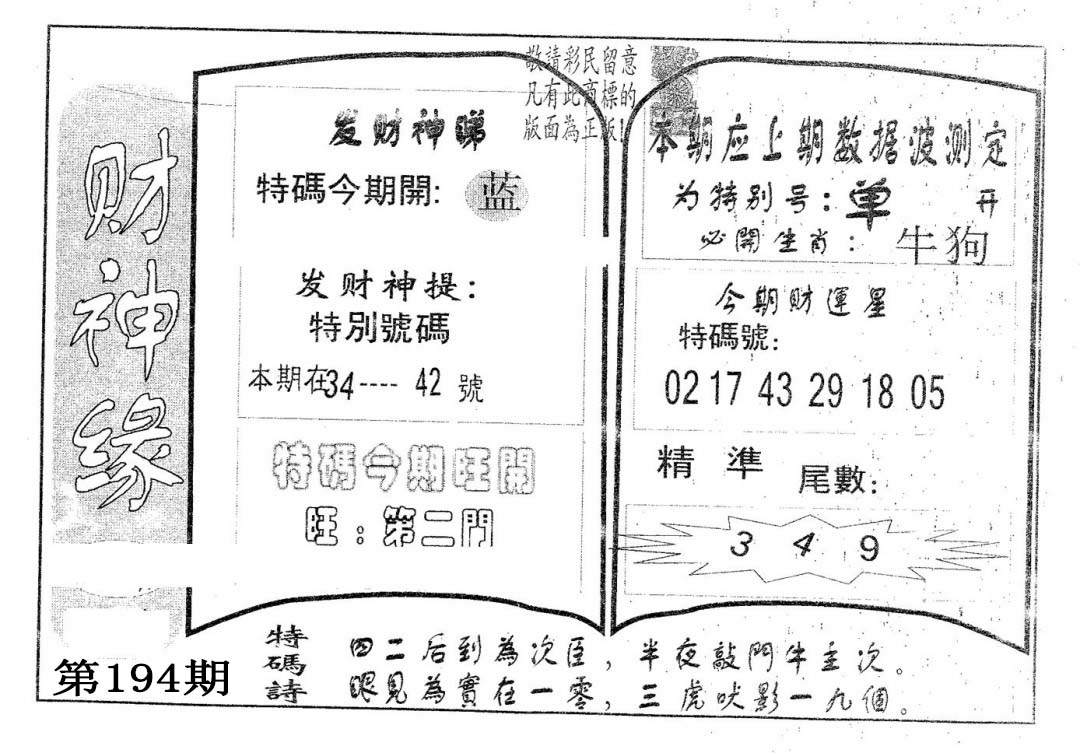 财神缘
第194期
敬請彩民留意
凡有此商標的
版面為正版!
发财神睇
特碼今期開:
蓝
发财神提:
特別號碼
本期在34---- 42 號
特碼今期旺開
旺:第二門
本期应上期数据波测定
为特别号:单 开
必開生肖: 牛狗
今期財運星
特碼號:
02 17 43 29 18 05
精準 尾數:
3 4 9
特碼詩
四二后到為次臣, 半夜敲門牛主次。
眼見為實在一零, 三虎吠影一九個。